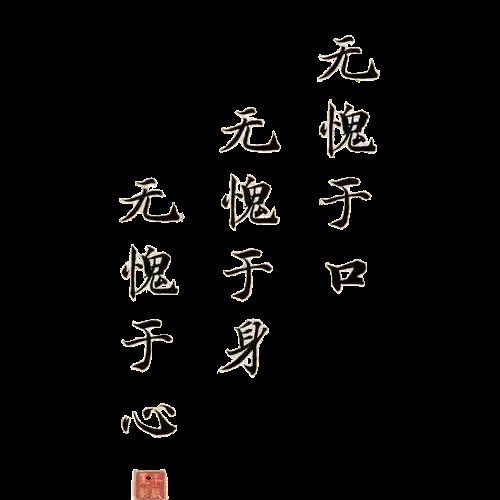 无愧于口
无愧于身
无愧于心